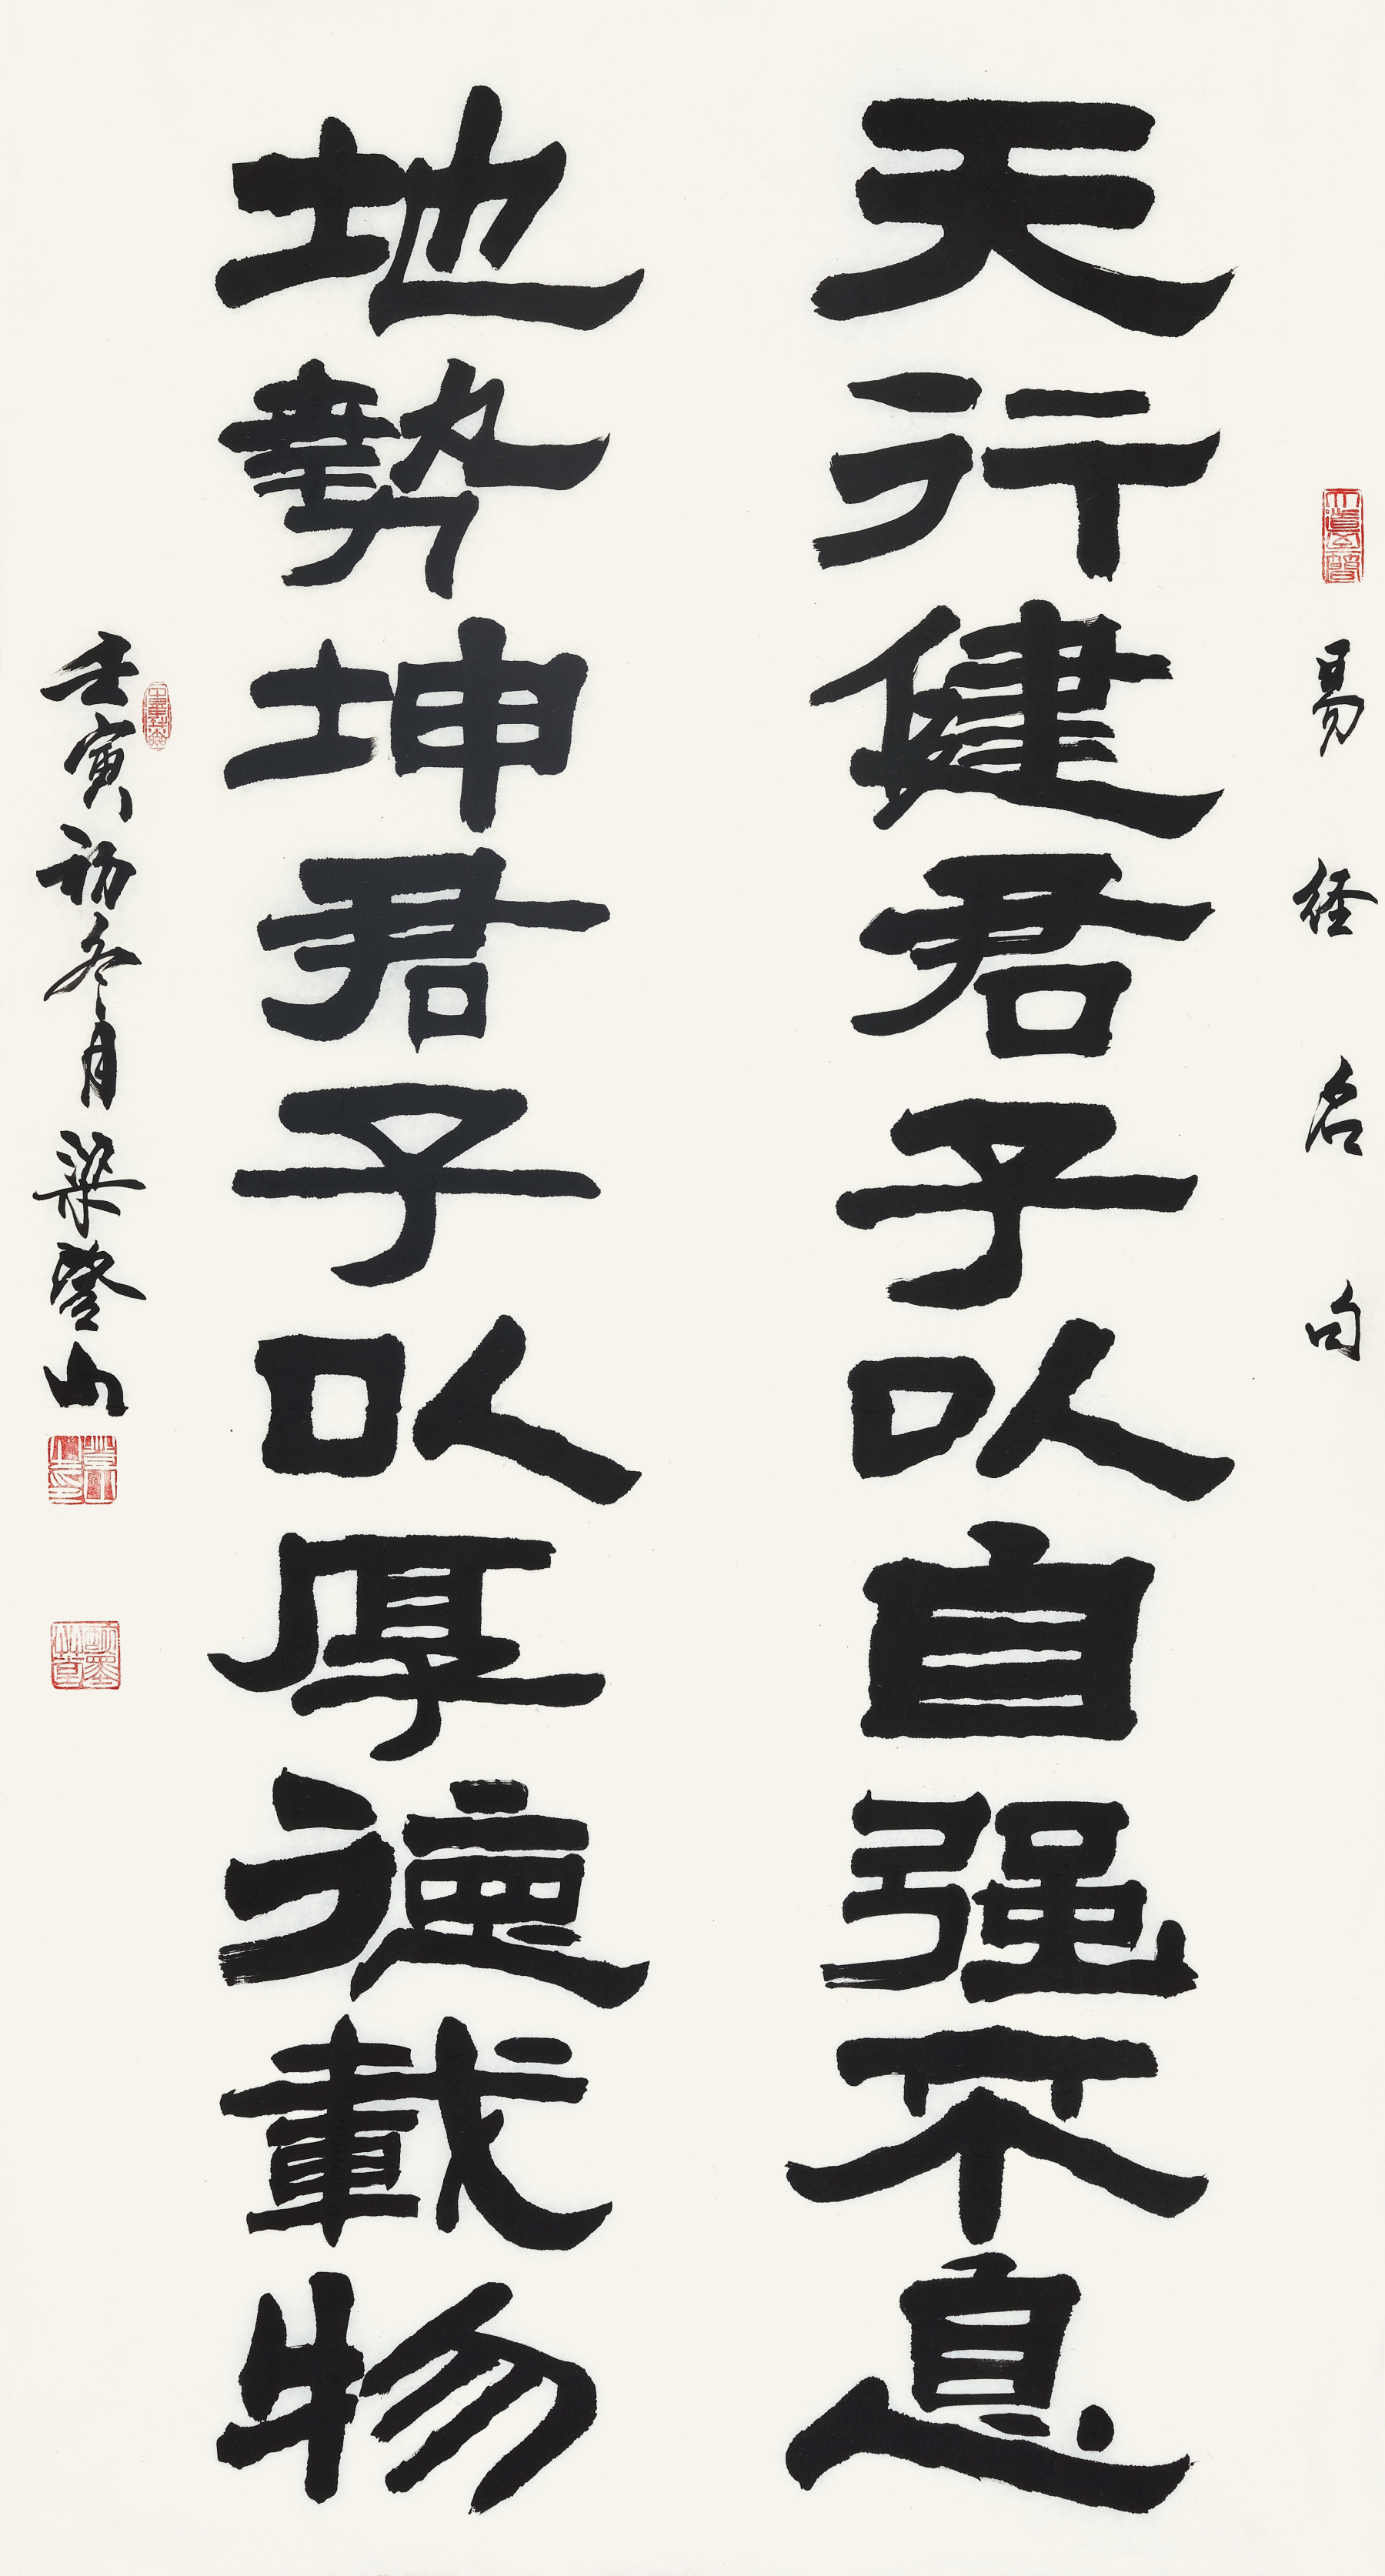 易经名句
天行健君子以自强不息
地勢坤君子以厚德載物
壬寅初冬月梁登山